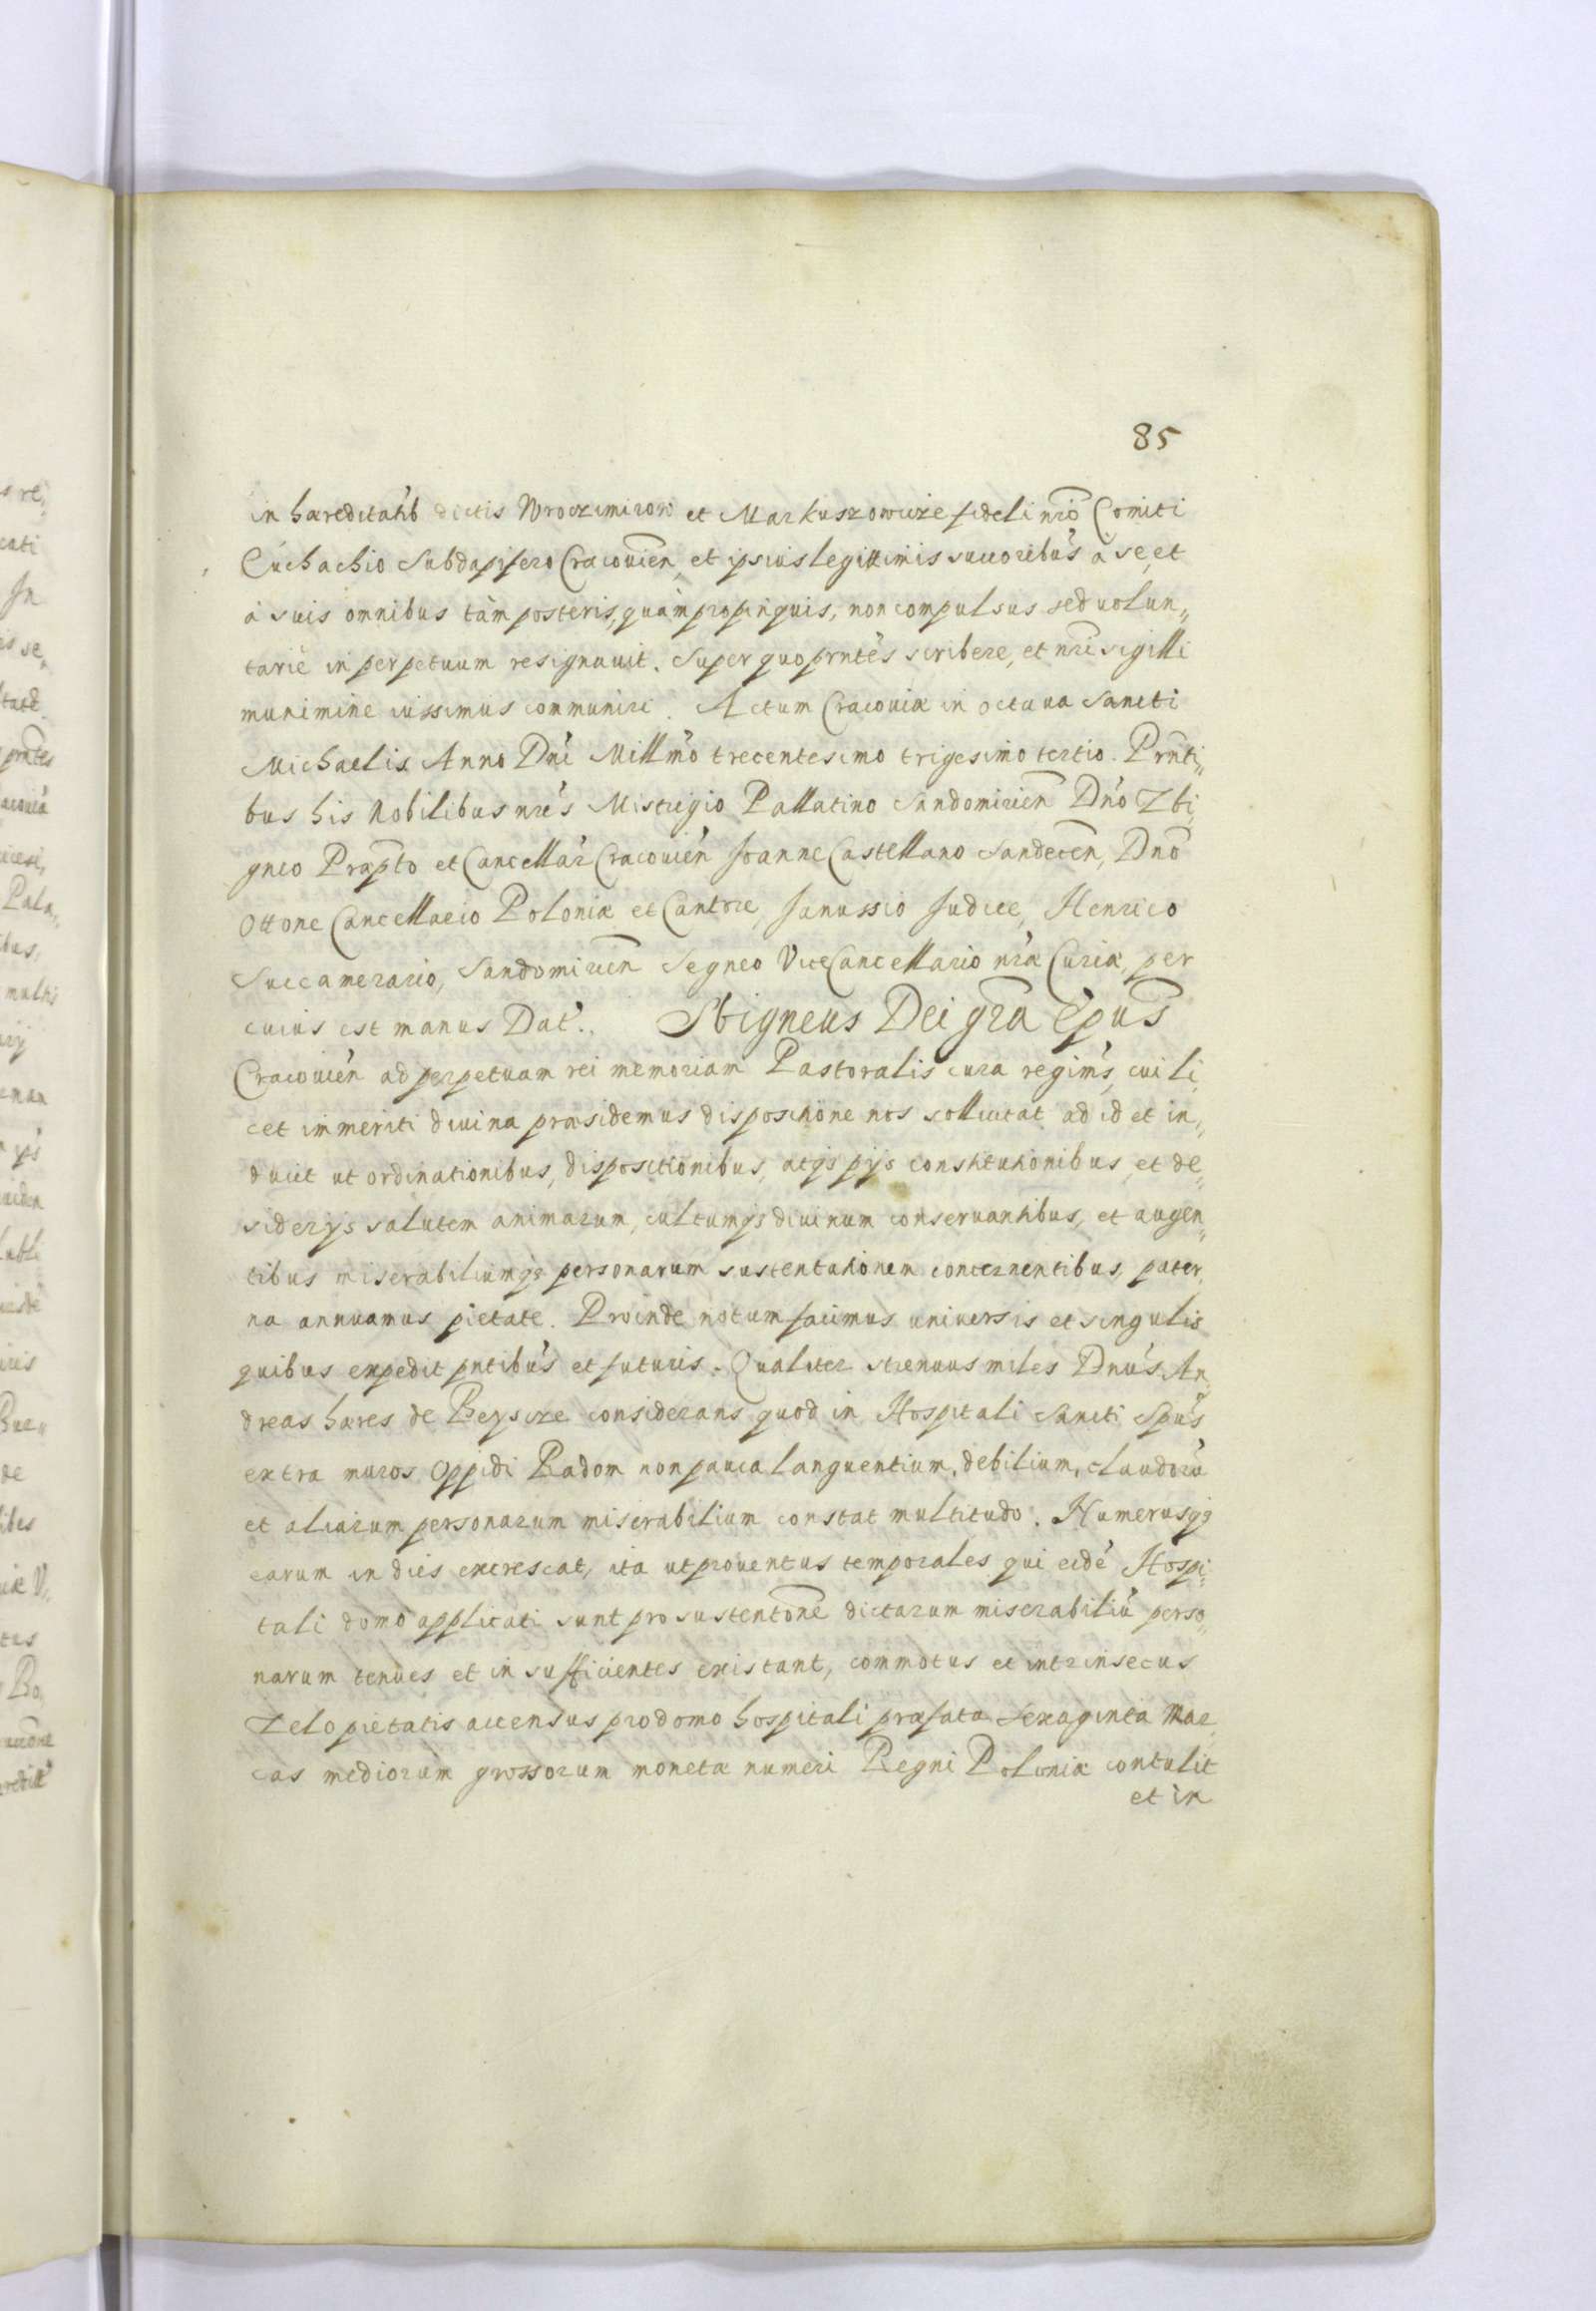 85
in hæreditatib dictis Wroczimirow et Markuszowicze fideli nrõ Comiti
Cuchachio Subdapifero Cracouien, et ipsius legittimis succoribus à se, et
à suis omnibus tàm posteris, quàm propinquis, non compulsus sed uolun„
tarie in perpetuum resignauit. Super quo prntes scribere, et nri sigilli
munimine iussimus communiri. Actum Cracouiæ in octaua Sancti
Michaelis Anno Dni Millmo trecentesimo trigesimo tertio. Prnti„
bus his Nobilibus nris Mistigio Pallatino Sandomirien Dno Zbi„
gneo Præpto et Cancellar Cracouien Joanne Castellano Sandecen, Dno
Ottone Cancellario Poloniæ et Cantore, Janussio Judice, Henrico
Succamerario, Sandomirien Segneo ViceCancellario nræ Curiæ, per
cuius est manus Dat. Sbigneus Dei gra Epus
Cracouien ad perpetuam rei memoriam Pastoralis cura regims, cui li„
cet immeriti diuina præsidemus dispositione nos sollicitat ad id et in„
ducit ut ordinationibus, dispositionibus, atq3 pijs constitutionibus, et de„
siderijs salutem animarum, cultumq3 diuinum conseruantibus, et augen„
tibus miserabiliumq3 personarum sustentationem concernentibus, pater„
na annuamus pietate. Proinde notum facimus uniuersis et singulis
quibus expedit pntibus et futuris. Qualiter strenuus miles Dnus An„
dreas hæres de Beysze considerans quod in Hospitali Sancti Spus
extra muros Oppidi Radom non pauca languentium, debilium, claudorù
et aliarum personarum miserabilium constat multitudo. Numerusq3
earum in dies excrescat, ita ut prouentus temporales qui eidè Hospi„
tali domo applicati sunt pro sustentone dictarum miserabiliù perso„
narum tenues et insufficientes existant, commotus et intrinsecus
Zelo pietatis accensus pro domo hospitali præfata Sexaginta Mar„
cas mediorum grossorum monetæ numeri Regni Poloniæ contulit
et in